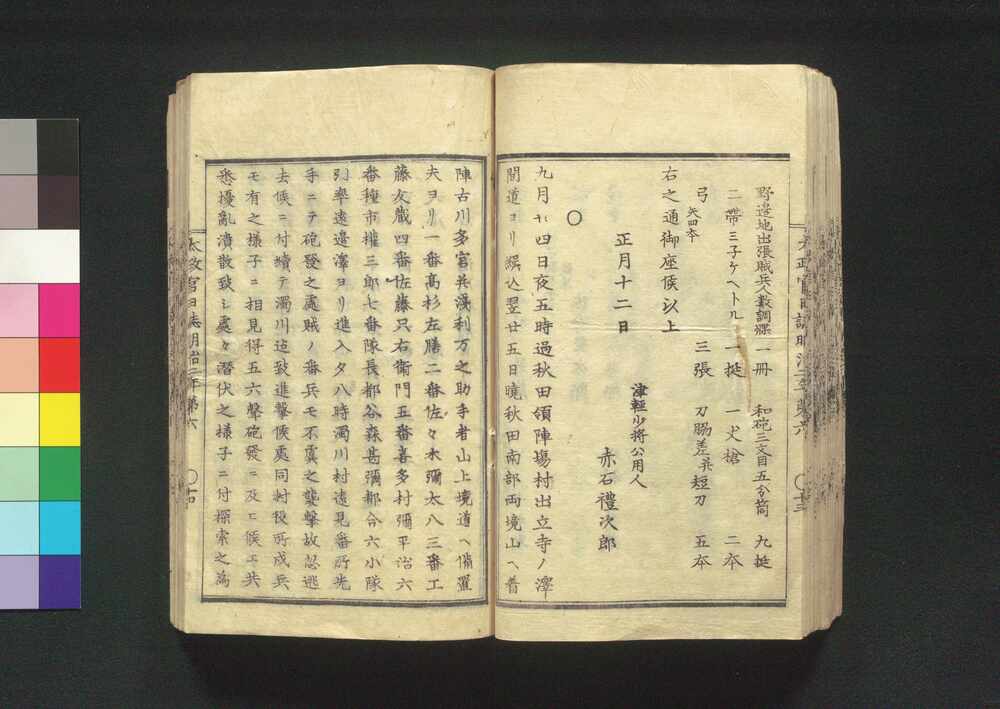 野邊地出張賊兵人數調牒一冊 和砲三文目五分筒 九挺
二帶ミ子ケヘトル 一挺 一丈槍 二夲
弓 矢四夲 三張 刀脇差共短刀 五夲
右之通御座候以上
正月十二日
津輕少將公用人
赤石禮次郎
〇
九月廿四日夜五時過秋田領陣場村出立寺ノ澤
間道ヨリ繰込翌廿五日曉秋田南部両境山へ着
太政官日誌明治二年第六 〇十三
陣古川多宮共淺利万之助手者山上境道へ備置
夫ヨリ一番高杉左膳二番佐々木彌太八三番工
藤友藏四番佐藤只右衛門五番喜多村彌平治六
番種市權三郎七番隊長都谷森甚彌都合六小隊
引率遠邉澤ヨリ進入夕八時濁川村遠見番所先
手ニテ砲發之處賊ノ番兵モ不虞之襲擊故忽逃
去候ニ付續テ濁川迠致進擊候處同村役所戍兵
モ有之様子ニ相見得五六聲砲發ニ及ヒ候ヱ共
悉擾亂潰散致シ處々潜伏之様子ニ付探索之為
太政官日誌明治二年第六 〇十四